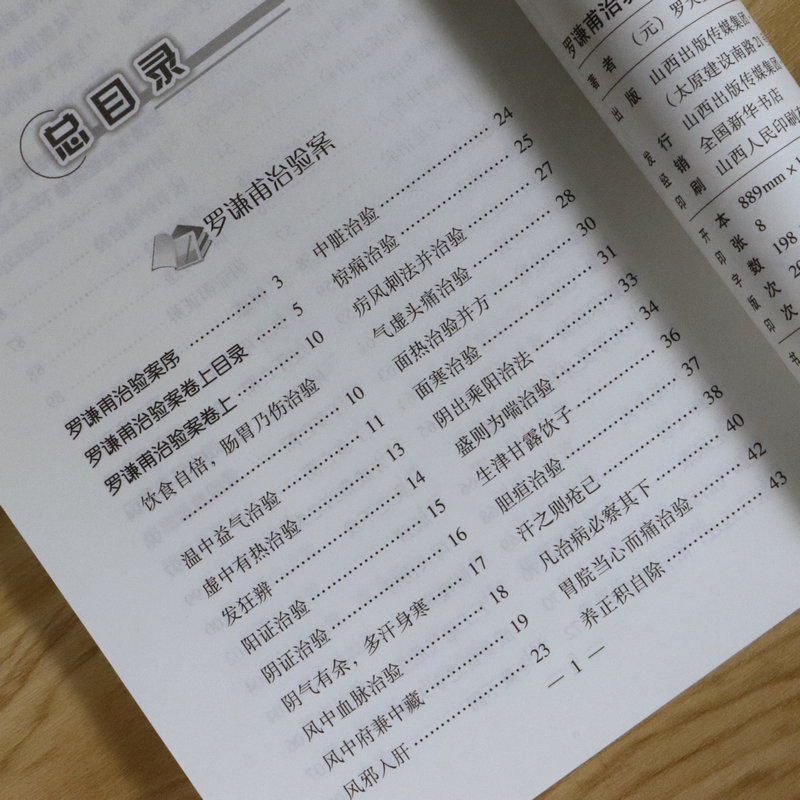 总目录
罗谦甫治验案
罗谦甫治验案序 …… 3
罗谦甫治验案卷上目录 …… 5
罗谦甫治验案卷上 …… 10
饮食自倍，肠胃乃伤治验
…… 10
温中益气治验 …… 11
虚中有热治验 …… 13
发狂辨 …… 14
阳证治验 …… 15
阴证治验 …… 16
阴气有余，多汗身寒 …… 17
风中血脉治验 …… 18
风中府兼中藏 …… 19
风邪入肝 …… 23
中脏治验 …… 24
惊痫治验 …… 25
疠风刺法并治验 …… 27
气虚头痛治验 …… 28
面热治验并方 …… 30
面寒治验 …… 31
阴出乘阳治法 …… 33
盛则为喘治验 …… 34
生津甘露饮子 …… 36
胆疸治验 …… 37
汗之则疮已 …… 38
凡治病必察其下 …… 40
胃脘当心而痛治验 …… 42
养正积自除 …… 43
— 1 —
罗谦甫治
著者 （元）罗天
出版 山西出版传媒集团
（太原建设南路21
发行 山西出版传媒集团
经销 全国新华书店
印刷 山西人民印刷
开本 889mm×1
印张 8
字数 198
版次 20
印次
书